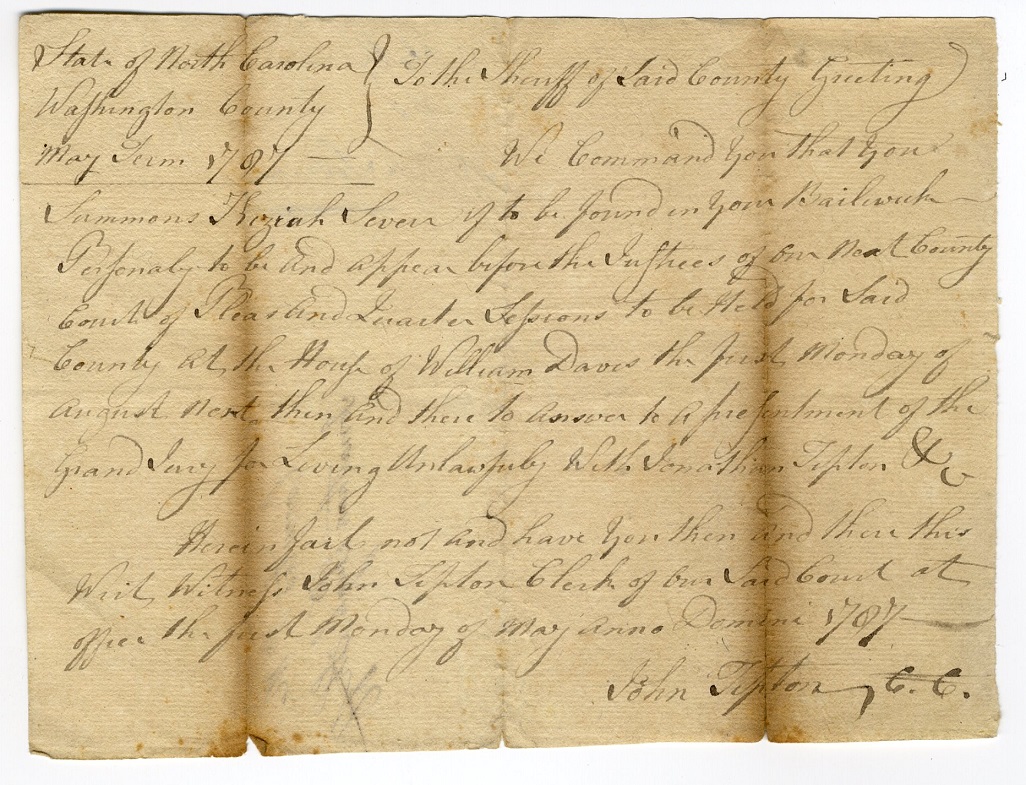 State of North Carolina } To the Sheriff of Said County Greeting
Washington County
May Term 1787 — We Command You that You
Summons Keziah Sever if to be found in Your Bailiwick —
Personaly to be And appear before the Justices of Our Next County
Court of Pleas And Quarter Sessions to be Held for Said
County at the House of William Davis the first Monday of
August Next then And there to answer to a presentment of the
Grand Jury for Living Unlawfuly With Jonathan Tipton &c
Herein fail not And have You then And there this
Writ Witness John Tipton Clerk of Our Said Court at
office the first Monday of May Anno Domini 1787 —
John Tipton C. C.